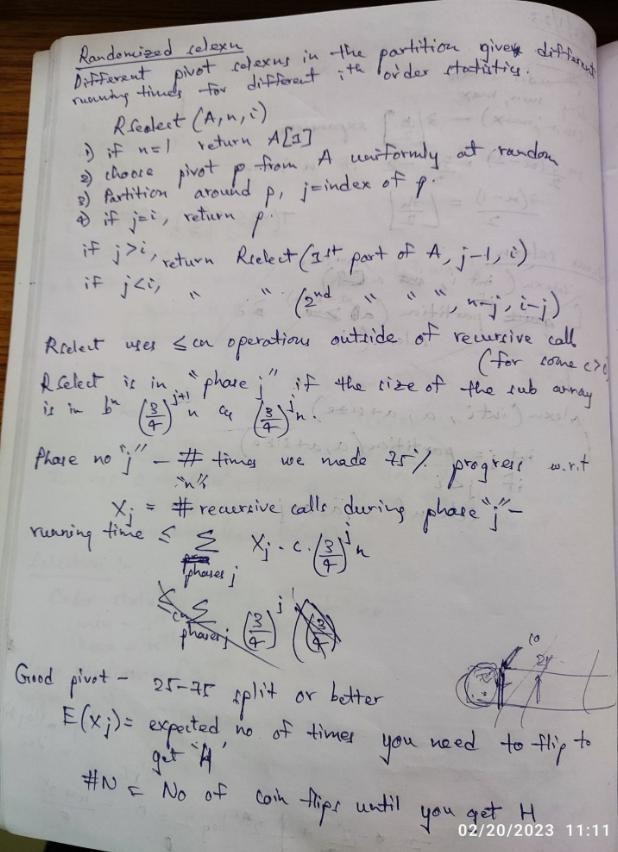 Randomized selexn
Different pivot selexns in the partition gives different
running times for different ith order statistics.
RSealect (A, n, i)
1) if n=1 return A[1]
2) choose pivot p from A uniformly at random
3) Partition around p, j=index of p.
4) if j=i, return p.
if j>i, return Rselect (1st part of A, j-1, i)
if j<i, " " (2nd " " ", n-j, i-j)
Rselect uses ≤cn operations outside of recursive call
(for some c>0)
Rselect is in "phase j" if the size of the sub array
is in bn (3/4)^(j+1) n & (3/4)^j n.
Phase no "j" - # times we made 75% progress w.r.t
"n"
Xj = # recursive calls during phase "j" -
running time ≤ Σ Xj · c · (3/4)^j n
phases j
≤ cn Σ (3/4)^j
phases j
10
Good pivot - 25-75 split or better
E(Xj) = expected no of times you need to flip to
get 'H'
#N = No of coin flips until you get H
02/20/2023 11:11